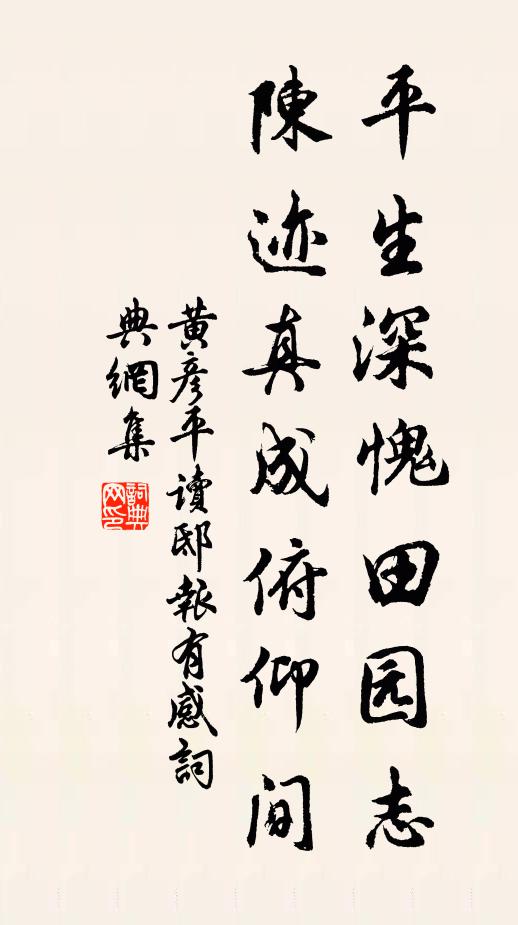 平生深愧田园志
陳迹真成俯仰间
黄彦平讀邸報有感詞
典網集
詞典网印